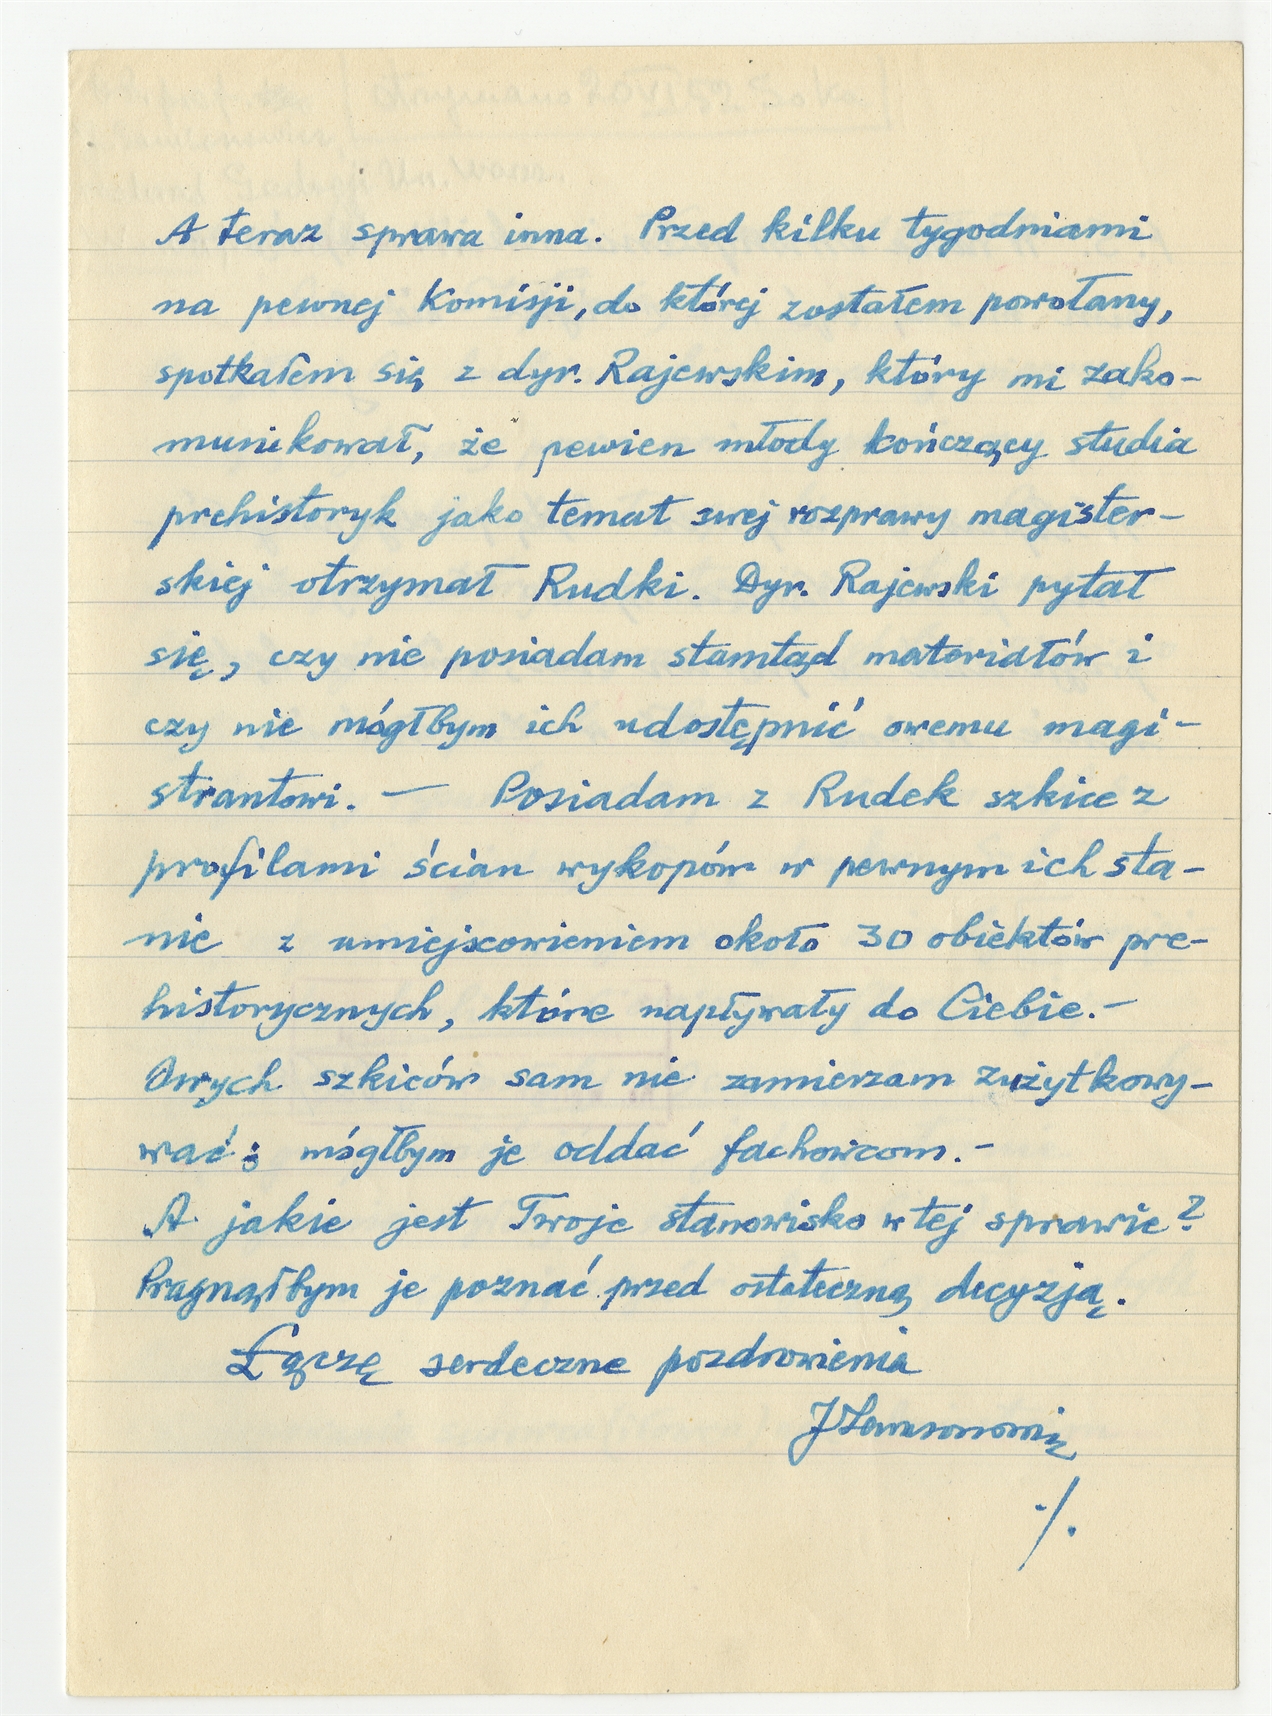 A teraz sprawa inna. Przed kilku tygodniami
na pewnej Komisji, do której zostałem powołany,
spotkałem się z dyr. Rajewskim, który mi zako-
munikował, że pewien młody kończący studia
prehistoryk jako temat swej rozprawy magister-
skiej otrzymał Rudki. Dyr. Rajewski pytał
się, czy nie posiadam stamtąd materiałów i
czy nie mógłbym ich udostępnić owemu magi-
strantowi. — Posiadam z Rudek szkice z
profilami ścian wykopów w pewnym ich sta-
nie z umiejscowieniem około 30 obiektów pre-
historycznych, które napływały do Ciebie. —
Owych szkiców sam nie zamierzam zużytkowy-
wać; mógłbym je oddać fachowcom. —
A jakie jest Twoje stanowisko w tej sprawie?
Pragnąłbym je poznać przed ostateczną decyzją.
Łączę serdeczne pozdrowienia
./.